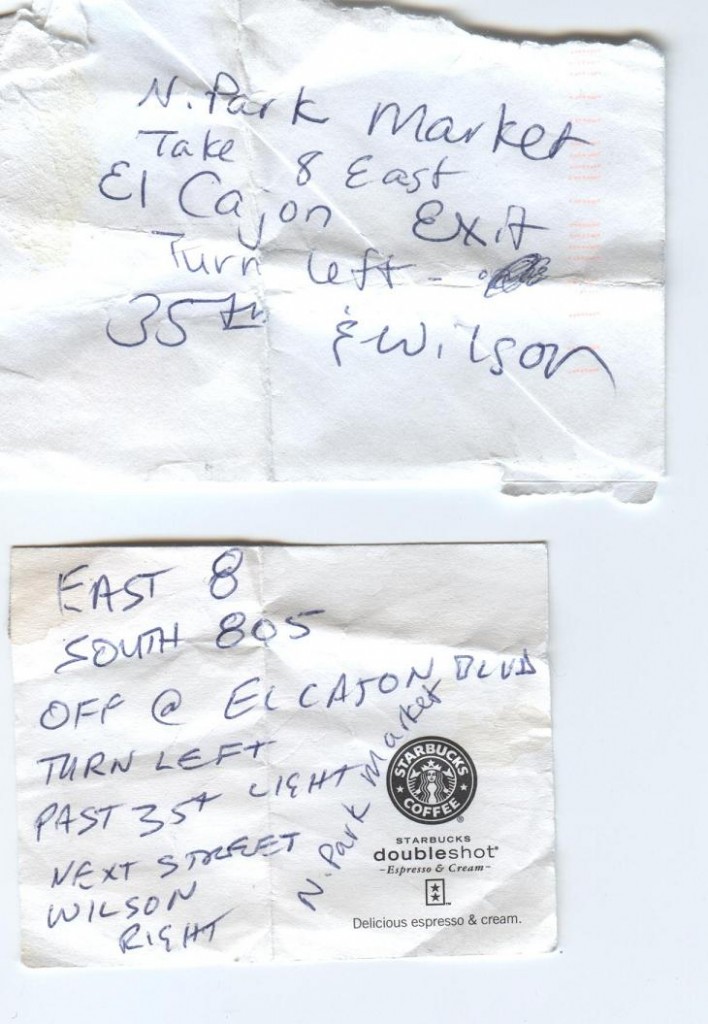 N. Park Market
Take 8 East
El Cajon Exit
Turn left -
35th & Wilson
EAST 8
SOUTH 805
OFF @ EL CAJON BLVD
TURN LEFT
PAST 35t LIGHT
NEXT STREET
WILSON
RIGHT
N. Park Market
STARBUCKS
COFFEE
STARBUCKS
doubleshot®
~Espresso & Cream~
Delicious espresso & cream.